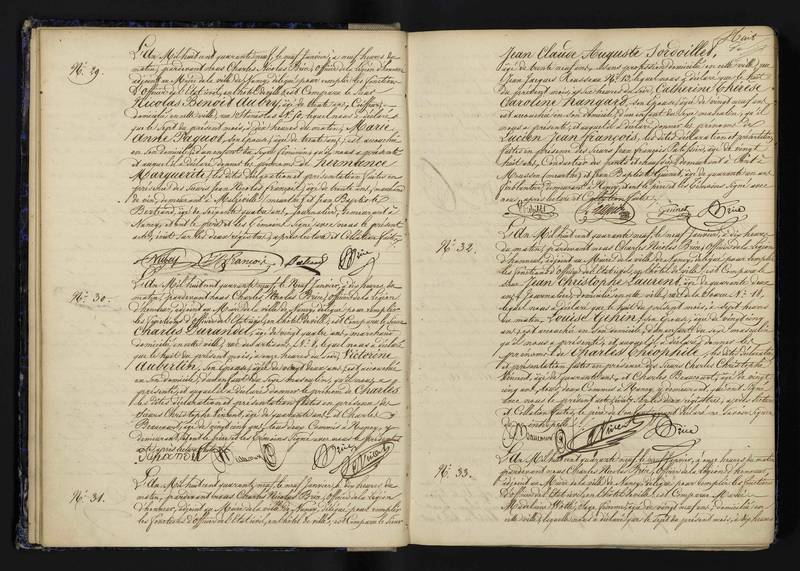 N.º 29.
L'An Mil huit cent quarante neuf, le neuf Janvier, à neuf heures du
matin, pardevant nous Charles Nicolas Brice, Officier de la Légion d'honneur
adjoint au Maire de la ville de Nancy, délégué pour remplir les fonctions
d'Officier de l'Etat civil, en l'hôtel de ville, est Comparu le Sieur
Nicolas Benoit Aubry, âgé de trente ans, Coiffeur,
domicilié en cette ville, rue Stanislas N.º 50, lequel nous a déclaré
que le Sept du présent mois, à dix heures du matin, Marie
Anne Pagnot, son épouse, âgée de trente ans, est accouchée
en son domicile d'un enfant du Sexe féminin qu'il nous a présenté
et auquel il a déclaré donner les prénoms de Hermence
Marguerite, les dites déclaration et présentation faites en
présence des Sieurs Jean Nicolas François, âgé de trente ans, marchand
de vin, demeurant à Malzéville (meurthe) et Jean Baptiste
Bertrand, âgé de soixante quatre ans, Journalier, demeurant à
Nancy, et ont le père et les témoins Signé avec nous le présent
acte, écrit sur les deux régistres, après lecture et Collation faites.
Aubry François Brice
N.º 30.
L'An Mil huit cent quarante neuf, le Neuf Janvier, à dix heures du
matin, pardevant nous Charles Nicolas Brice, Officier de la Légion
d'honneur, adjoint au Maire de la ville de Nancy, délégué pour remplir
les fonctions d'Officier de l'Etat civil, en l'hôtel de ville, est Comparu le Sieur
Charles Durand, âgé de vingt quatre ans, marchand
domicilié en cette ville, rue des artisans, N.º 8, lequel nous a déclaré
que le huit du présent mois, à onze heures du Soir, Victorine
Aubertin, Son épouse, âgée de vingt deux ans, est accouchée
en Son domicile, d'un enfant du Sexe masculin, qu'il nous a
présenté, et auquel il a déclaré donner le prénom de Charles
les dites déclaration et présentation faites en présence des
Sieurs Christophe Vincent, âgé de quarante ans, et Charles
Beaucourt, âgé de vingt cinq ans, tous deux Commis à Nancy, y
demeurant, et ont le père et les témoins Signé avec nous le présent
acte après lecture
Vincent Brice
N.º 31.
L'An Mil huit cent quarante neuf, le neuf Janvier, à dix heures du
matin, pardevant nous Charles Nicolas Brice, Officier de la Légion
d'honneur, adjoint au Maire de la ville de Nancy, délégué pour remplir
les fonctions d'Officier de l'Etat civil, en l'hôtel de ville, est Comparu le Sieur
Huit
Jean Claude Auguste Tordoillet,
âgé de trente neuf ans, sans profession, domicilié en cette ville, rue
Jean Jacques Rousseau, N.º 12, lequel nous a déclaré que le huit
du présent mois, à six heures du Soir, Catherine Thérèse
Caroline Hangard, son épouse, âgée de vingt neuf ans
est accouchée en Son domicile, d'un enfant du Sexe masculin, qu'il
nous a présenté, et auquel il a déclaré donner les prénoms de
Lucien Jean François, les dites déclaration et présentation
faites en présence des Sieurs Jean François âgé de vingt
huit ans, Conducteur des ponts et chaussées, demeurant à Pont à
Mousson (meurthe) et Jean Baptiste Guinet, âgé de quarante un ans
demeurant à Nancy, et ont le père et les témoins Signé avec
nous, après lecture et Collation faites.
Guinet Brice
N.º 32.
L'An Mil huit cent quarante neuf, le neuf Janvier, à dix heures
du matin, pardevant nous Charles Nicolas Brice, Officier de la Légion
d'honneur, adjoint au Maire de la ville de Nancy, délégué pour remplir
les fonctions d'Officier de l'Etat civil, en l'hôtel de ville, est Comparu le
Sieur Jean Christophe Laurent, âgé de quarante deux
ans, Journalier, domicilié en cette ville, rue de la Source N.º 18,
lequel nous a déclaré que le huit du présent mois, à sept heures
du matin, Louise Guyon, son épouse, âgée de vingt cinq
ans, est accouchée en Son domicile, d'un enfant du Sexe masculin
qu'il nous a présenté, et auquel il a déclaré donner les
prénoms de Charles Théophile, les dites déclaration
et présentation faites en présence des Sieurs Charles Christophe
Vincent, âgé de quarante ans, et Charles Beaucourt, âgé de vingt
cinq ans, tous deux Commis à Nancy, y demeurant, et ont Signé
avec nous le présent acte, écrit sur les deux régistres, après lecture
et Collation faites, le père
Beaucourt Vincent Brice
N.º 33.
L'An Mil huit cent quarante neuf, le neuf Janvier, à onze heures du matin
pardevant nous Charles Nicolas Brice, Officier de la Légion d'honneur,
adjoint au Maire de la ville de Nancy, délégué pour remplir les fonctions
d'Officier de l'Etat civil, en l'hôtel de ville, est Comparue
Madelaine Sage femme, âgée de vingt neuf ans, domiciliée en
cette ville, laquelle nous a déclaré que le Sept du présent mois, à dix heures